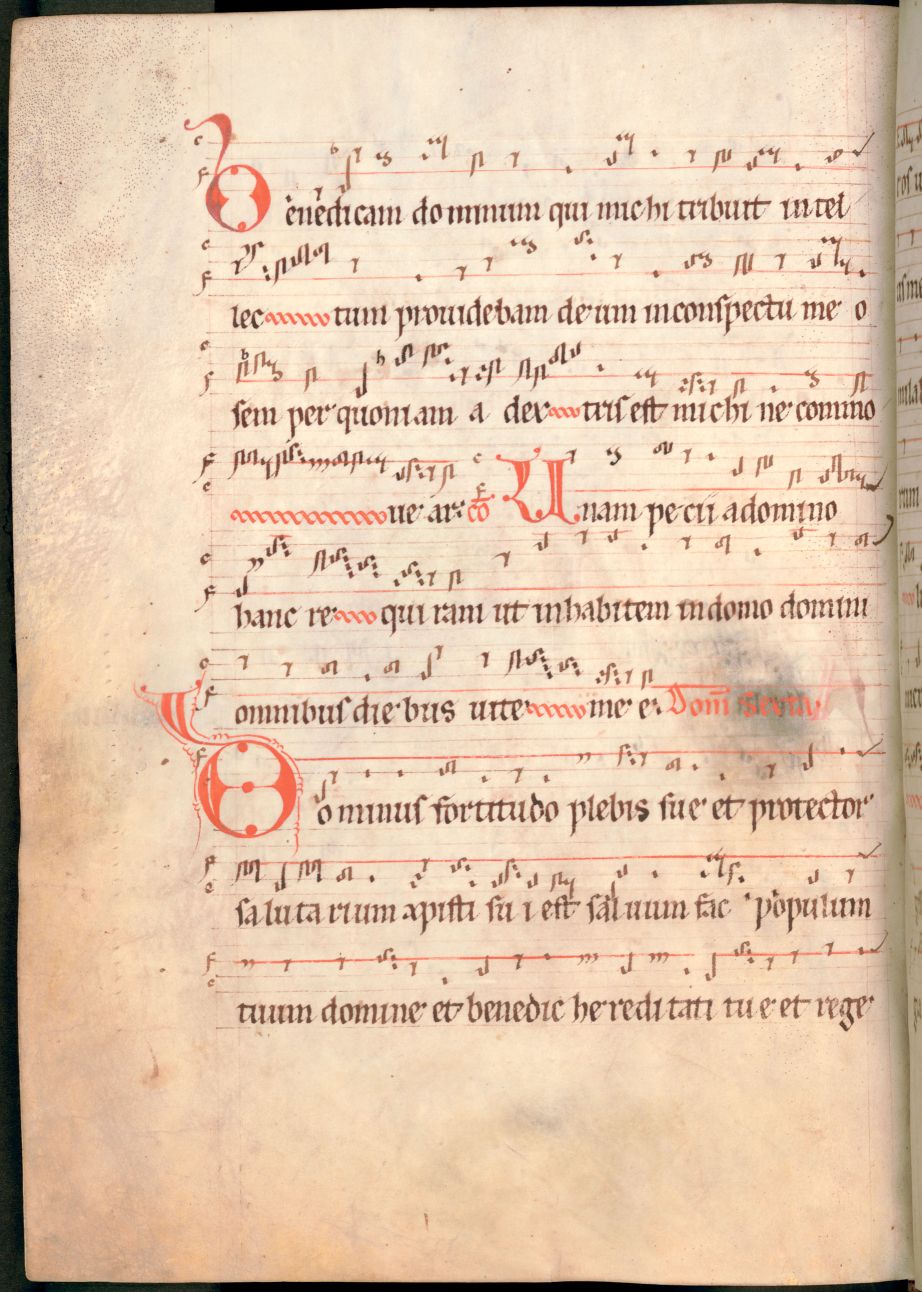 Benedicam dominum qui michi tribuit intel
lec tum prouidebam deum in conspectu me o
sem per quoniam a dex tris est michi ne commo
ue ar: cō Unam pe cii a domino
hanc re qui ram ut inhabitem in domo domini
omnibus die bus uite me e. Dom̄ Sexta
Dominus fortitudo plebis sue et protector
saluta rium xpisti su i est saluum fac populum
tuum domine et benedic he redi tati tu e et rege